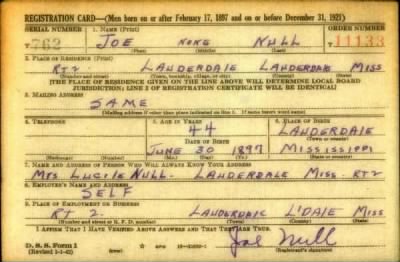 REGISTRATION CARD—(Men born on or after February 17, 1897 and on or before December 31, 1921)
SERIAL NUMBER 1. NAME (Print) ORDER NUMBER
T 762 JOE NONE NULL 11133
(First) (Middle) (Last)
2. PLACE OF RESIDENCE (Print)
RT 2. LAUDERDALE LAUDERDALE MISS
(Number and street) (Town, township, village, or city) (County) (State)
[THE PLACE OF RESIDENCE GIVEN ON THE LINE ABOVE WILL DETERMINE LOCAL BOARD
JURISDICTION; LINE 2 OF REGISTRATION CERTIFICATE WILL BE IDENTICAL]
3. MAILING ADDRESS
SAME
(Mailing address if other than place indicated on line 2. If same insert word same)
4. TELEPHONE 5. AGE IN YEARS 6. PLACE OF BIRTH
44 LAUDERDALE
DATE OF BIRTH (Town or county)
JUNE 30 1897 MISSISSIPPI
(Mo.) (Day) (Yr.) (State or country)
7. NAME AND ADDRESS OF PERSON WHO WILL ALWAYS KNOW YOUR ADDRESS
MRS LUCILE NULL. LAUDERDALE MISS. RT 2
8. EMPLOYER'S NAME AND ADDRESS
SELF
9. PLACE OF EMPLOYMENT OR BUSINESS
RT 2. LAUDERDALE L'DALE MISS
(Number and street or R. F. D. number) (Town) (County) (State)
I AFFIRM THAT I HAVE VERIFIED ABOVE ANSWERS AND THAT THEY ARE TRUE.
D. S. S. Form 1 Joe Null
(Revised 1-1-42) (Registrant's signature)